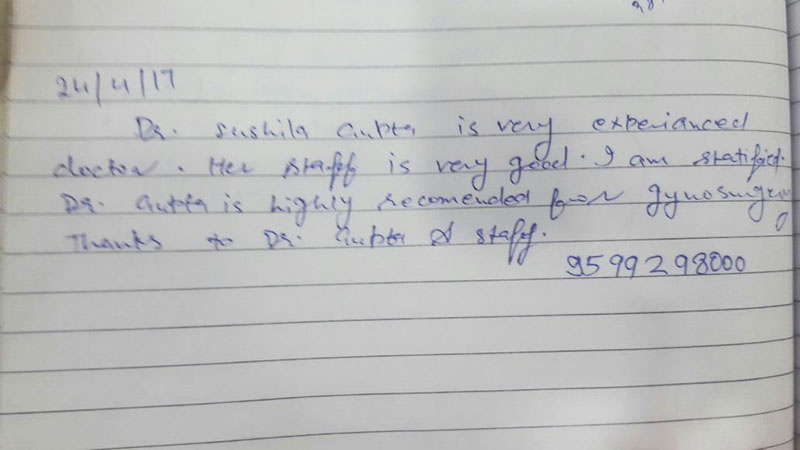 24/4/17
Dr. Sushila Gupta is very experianced
doctor. Her staff is very good. I am statified.
Dr. Gupta is highly recomended for gynosurgery
Thanks to Dr. Gupta & staff.
9599298000